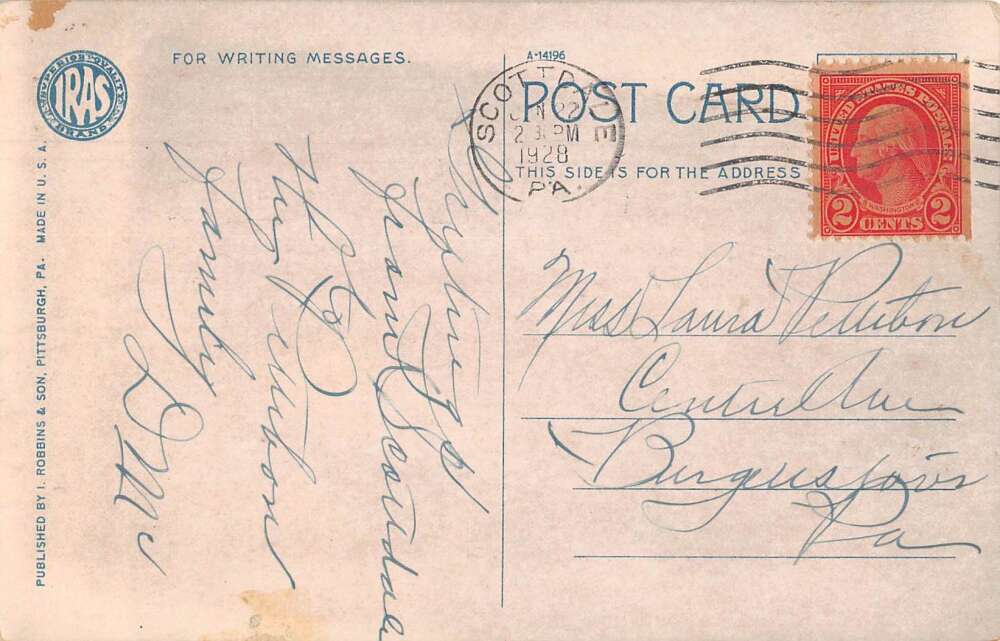 FOR WRITING MESSAGES.
A-14196
POST CARD
THIS SIDE IS FOR THE ADDRESS
SCOTTDALE
PA.
JUN 22
2 PM
1928
UNITED STATES POSTAGE
WASHINGTON
2 CENTS 2
SUPERIOR QUALITY
IRAS
STANDARD
PUBLISHED BY I. ROBBINS & SON, PITTSBURGH, PA. MADE IN U. S. A.
Greetings
from Scottdale
to the Pettibon
family
D Mc
Miss Laura Pettibon
Center Ave
Burgettstown
Pa